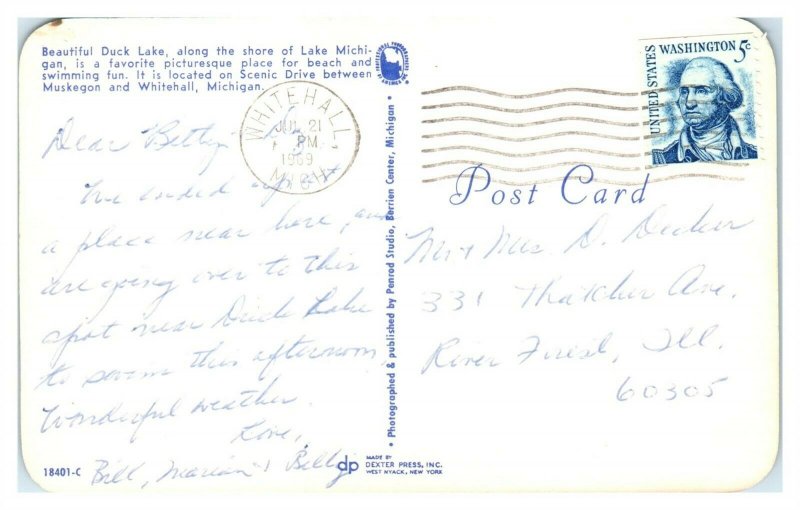 Beautiful Duck Lake, along the shore of Lake Michi-
gan, is a favorite picturesque place for beach and
swimming fun. It is located on Scenic Drive between
Muskegon and Whitehall, Michigan.
UNITED STATES
WASHINGTON 5c
WHITEHALL,
JUL 21
PM
1969
MICH
Post Card
Dear
We ended up at
a place near here, and
are going over to this
spot near Duck Lake
to swim this afternoon,
Wonderful weather.
Love,
Bill, Marian & Billy
Mr & Mrs. D. Decker
331 Thatcher Ave.
River Forest, Ill.
60305
• Photographed & published by Penrod Studio, Berrien Center, Michigan •
18401-C
dp
MADE BY
DEXTER PRESS, INC.
WEST NYACK, NEW YORK